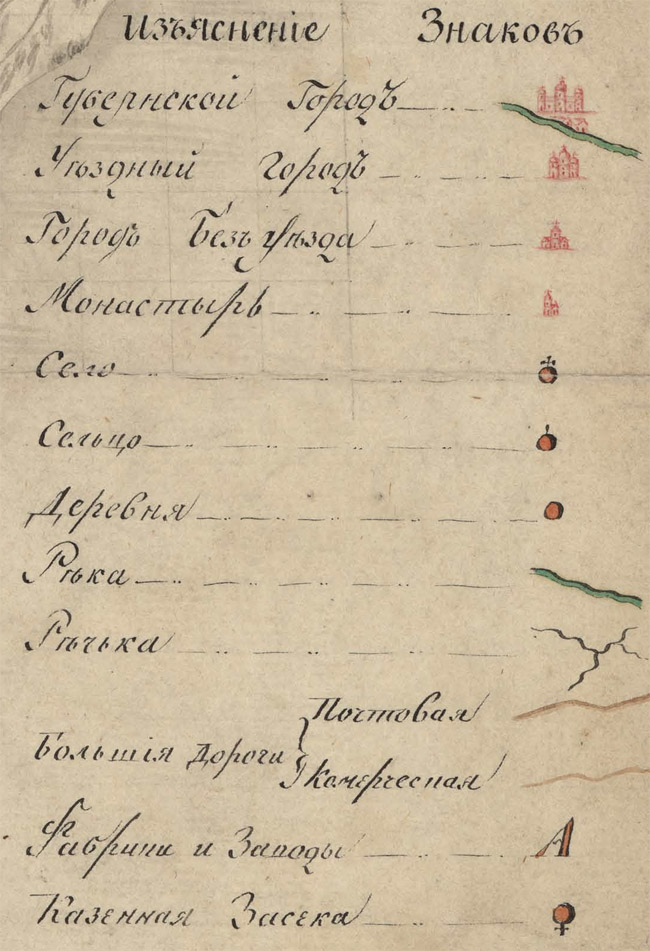 Изъясненіе Знаковъ
Губернской Городъ
Уѣздный городъ
Городъ Безъ Уѣзда
Монастырь
Село
Сельцо
Деревня
Рѣка
Рѣчька
Почтовая
Большія Дороги
Комерческая
Фабрики и Заводы
А
Казенная Засека